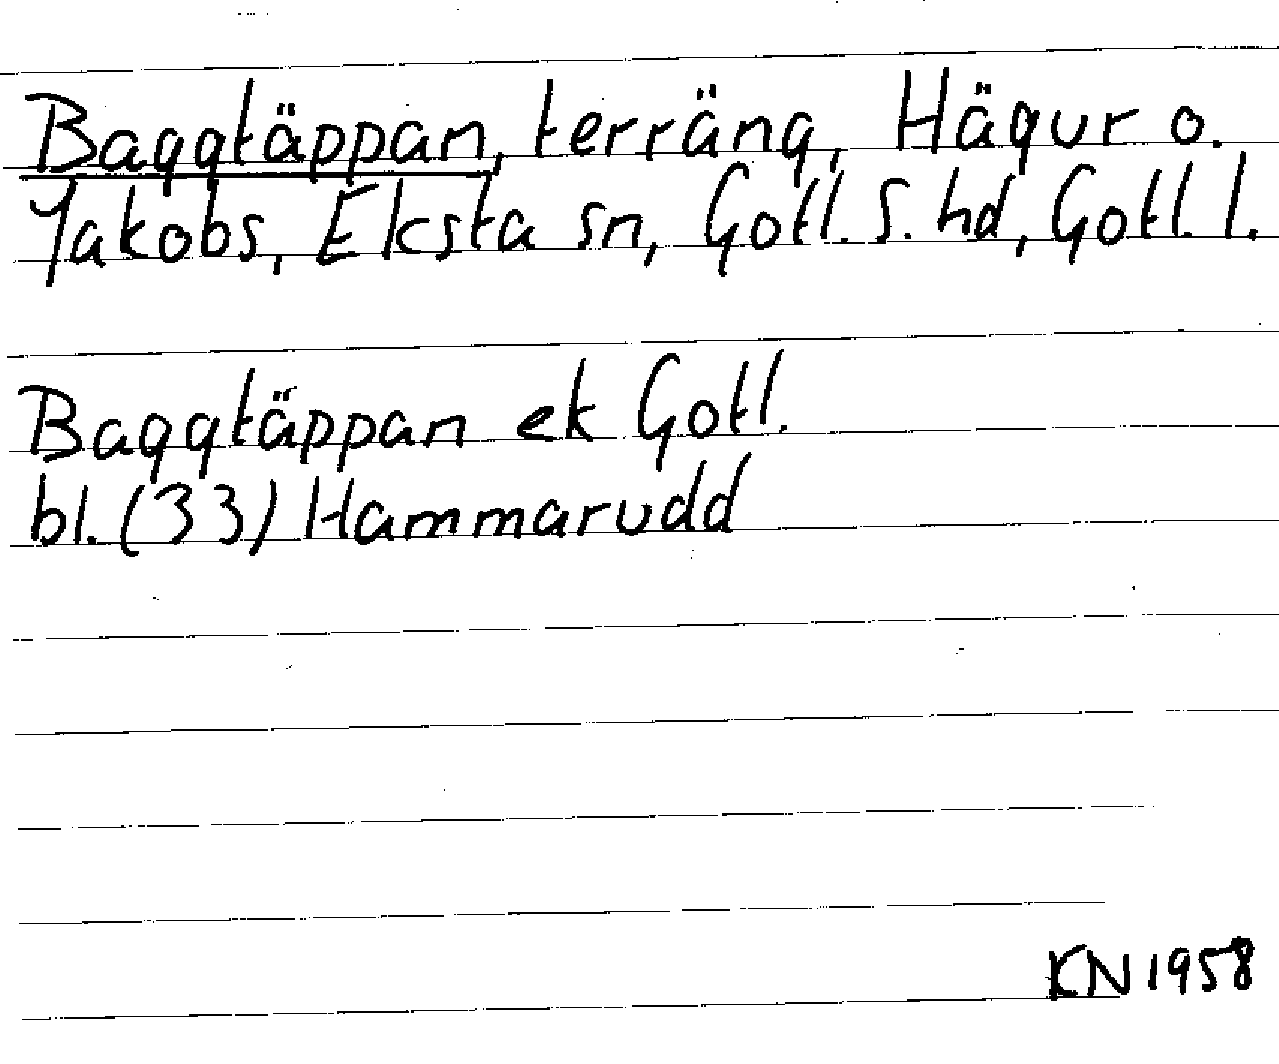 Baggtäppan, terräng, Hägur o.
Jakobs, Eksta sn, Gotl. S. hd, Gotl. l.
Baggtäppan ek Gotl.
bl. (33) Hammarudd
KN 1958